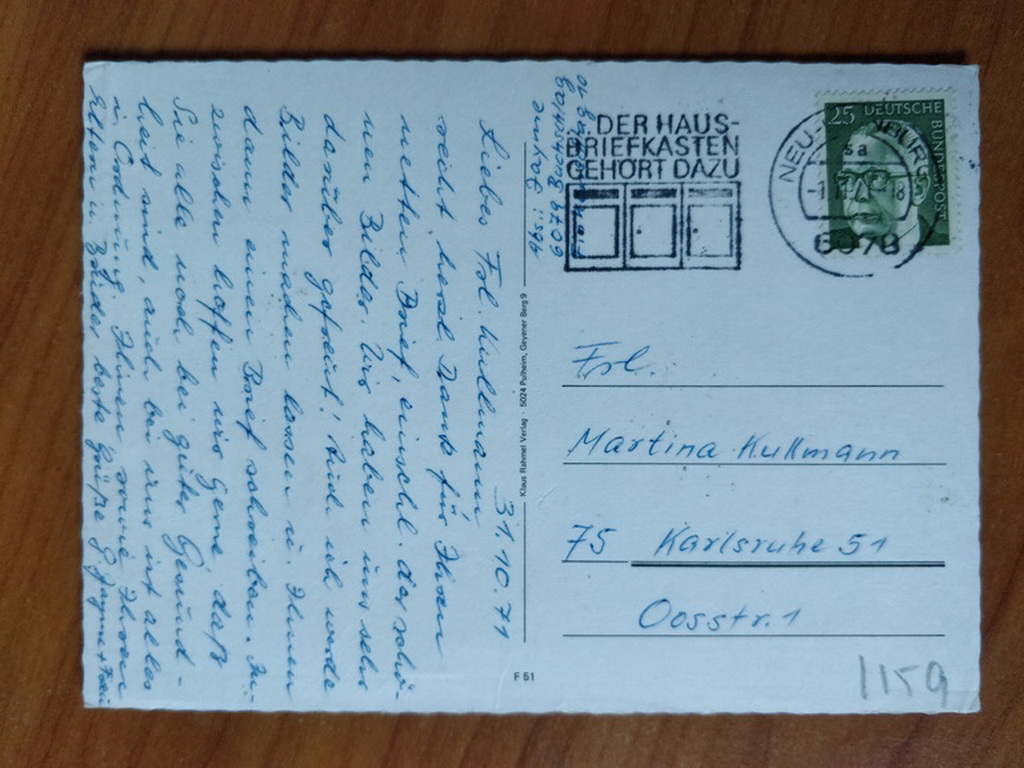 Liebes Frl. Kullmann 31.10.71
recht herzl. Dank für Ihren
netten Brief, einschl. der schö-
nen Bilder. Wir haben uns sehr
darüber gefreut! Auch ich werde
Bilder machen lassen u. Ihnen
dann einen Brief schreiben. In-
zwischen hoffen wir gerne, daß
Sie alle noch bei guter Gesund-
heit sind, auch bei uns ist alles
in Ordnung. Ihnen sowie Ihren
Eltern u. Bruder beste Grüße G.
Klaus Rahmel Verlag · 5024 Pulheim, Geyener Berg 9
F 51
Abs.:
DER HAUS-
BRIEFKASTEN
GEHÖRT DAZU
NEU-
sa
8
6078
25 DEUTSCHE BUNDESPOST
Frl.
Martina Kullmann
75 Karlsruhe 51
Oosstr. 1
1159